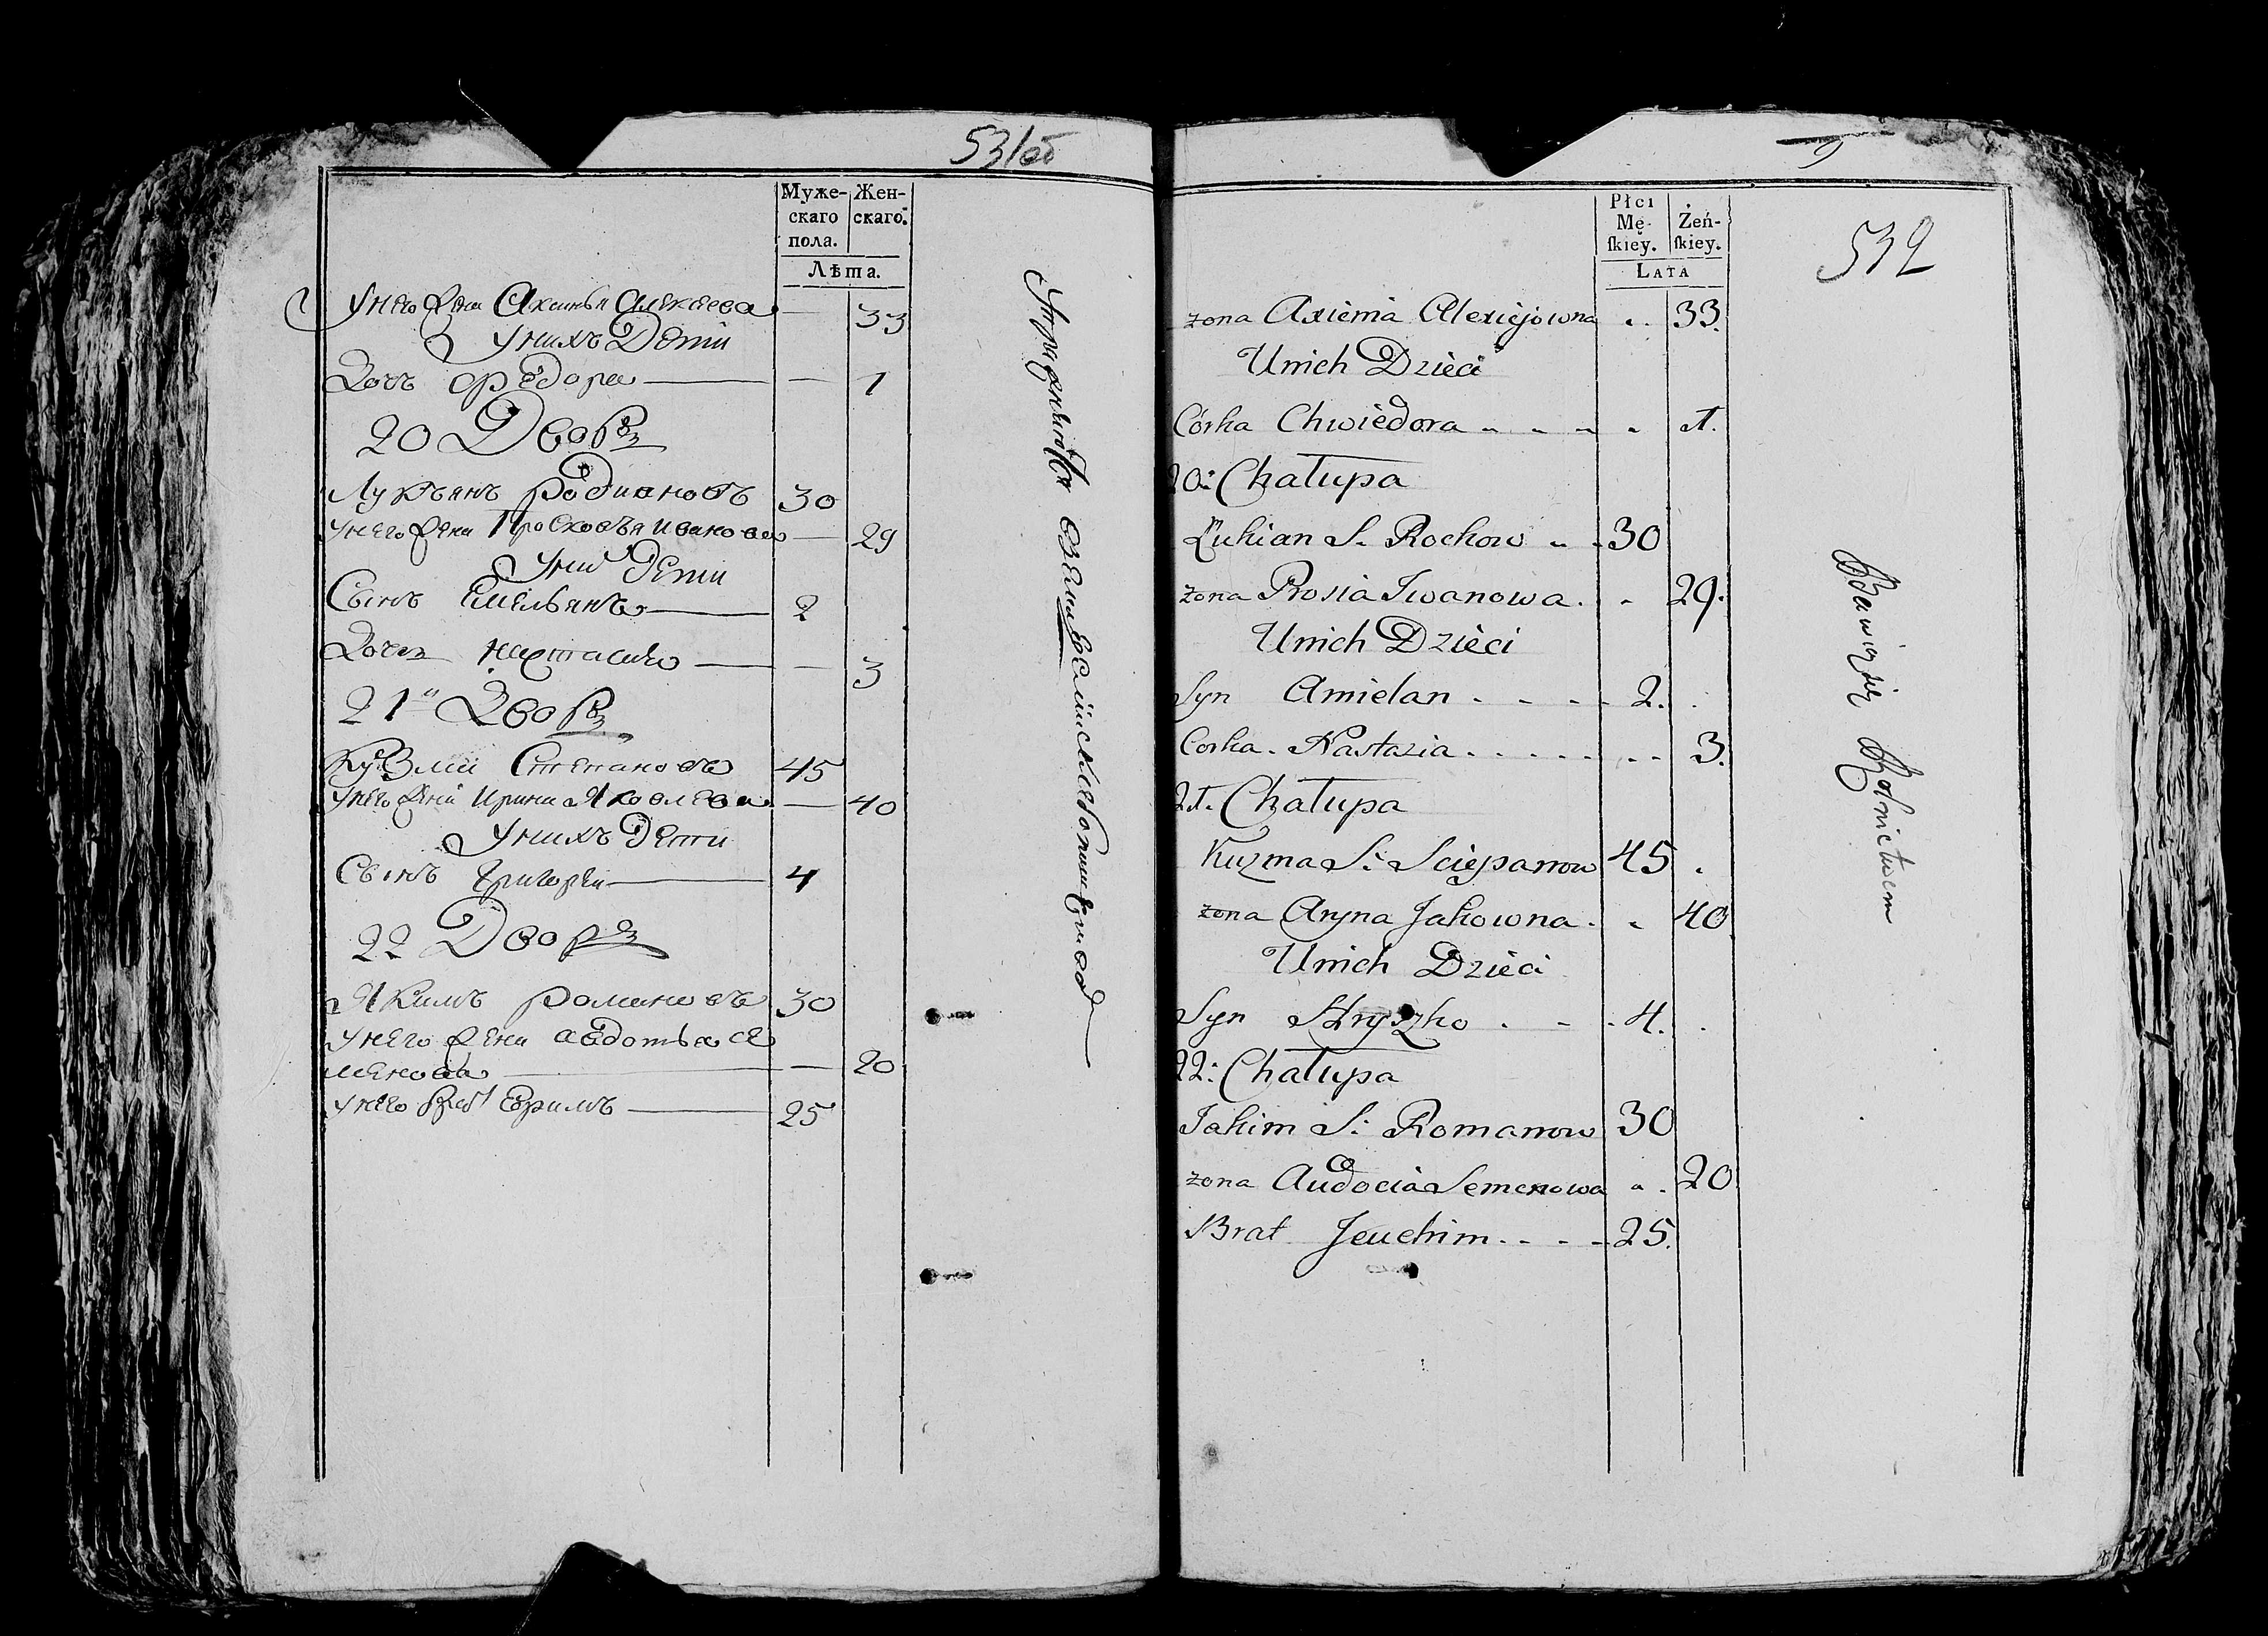 531об
Муже-
скаго
пола.
Жен-
скаго.
Лѣта.
У него жена Аксинья Алексеева — 33
У нихъ Дети
Дочь Федора — 1
20 Дворъ
Лукьянъ Родионовъ 30
У него жена Просковья Иванова — 29
У них Дети
Сынъ Емельянъ — 2
Дочь Настасия — 3
21й Дворъ
Кузма Степановъ 45
У него жена Ирина Яковлева — 40
У нихъ Дети
Сынъ Григорей — 4
22 Дворъ
Якимъ Романовъ 30
У него жена Авдотья Се
менова — 20
У него брат Ефимъ — 25
Упражняются
9
532
Płci
Mę-
ſkiey.
Żeń-
ſkiey.
LATA
zona Axienia Alexiejowna 33.
Unich Dzieci
Córka Chwiedora 1.
20: Chałupa
Łukian S. Rochow 30
zona Prosia Iwanowa 29.
Unich Dzieci
Syn Amielan 2.
Corka Nastazia 3.
21. Chałupa
Kuzma S: Sciepanow 45
zona Aryna Jakowna 40
Unich Dzieci
Syn Hryszko 4.
22: Chałupa
Jakim S: Romanow 30
zona Audocia Semenowa 20
Brat Jeuchim 25.
Bawią się Rolnictwem